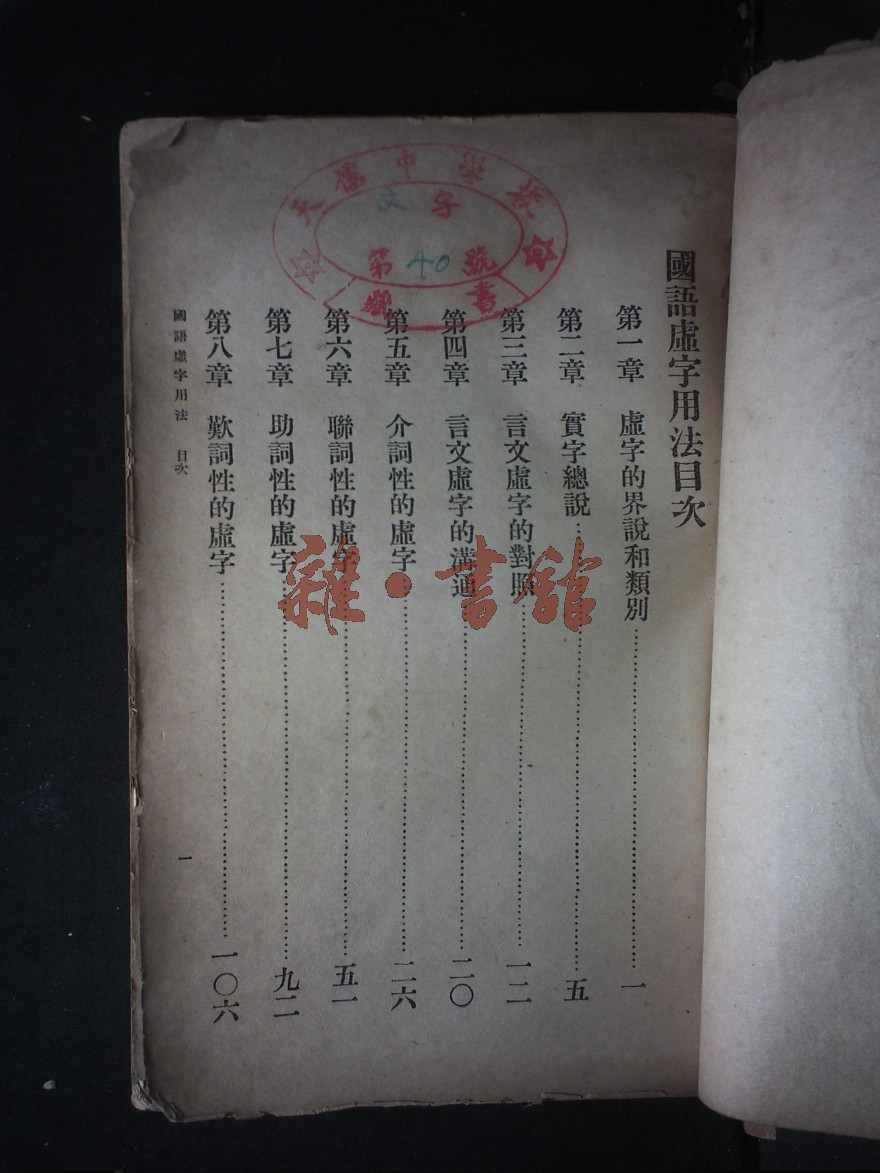 國語虛字用法目次
第一章 虛字的界說和類別……一
第二章 實字總說……五
第三章 言文虛字的對照……一二
第四章 言文虛字的溝通……二〇
第五章 介詞性的虛字……二六
第六章 聯詞性的虛字……五一
第七章 助詞性的虛字……九二
第八章 歎詞性的虛字……一〇六
國語虛字用法 目次
一
中學校
文字
第40號
書
雜·書館